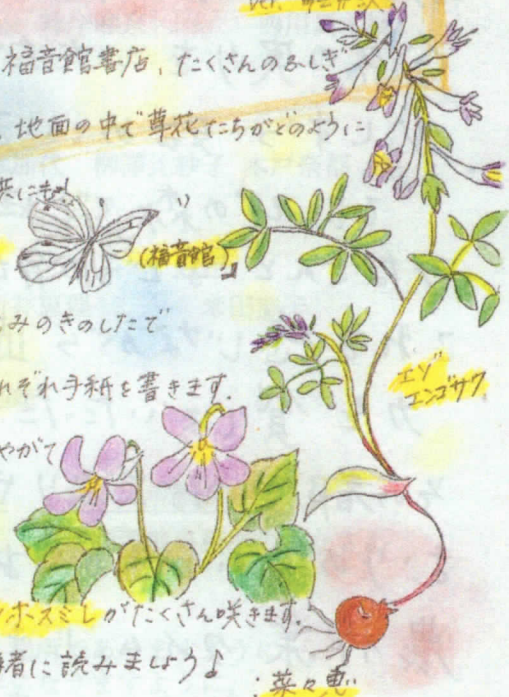 福音館書店、たくさんのふしぎ
地面の中で草花たちがどのように
(福音館)』
みのきのしたで
れぞれ手紙を書きます。
エゾ
エンゴサク
やがて
ボスミレがたくさん咲きます。
者に読みましょう♪